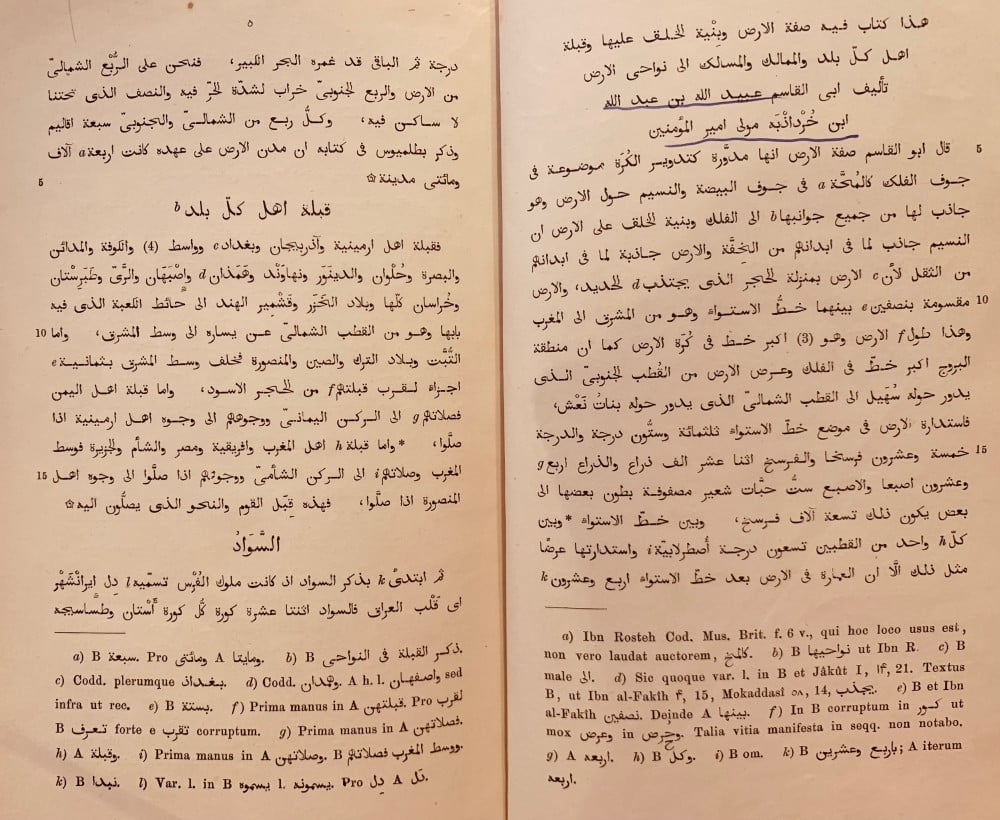 هذا كتاب فيه صفة الارض وبِنْية الخلق عليها وقبلة
اهل كلّ بلد والممالك والمسالك الى نواحى الارض
تأليف ابى القاسم عبيد الله بن عبد الله
ابن خُرْداذْبَه مولى امير المؤمنين
قال ابو القاسم صفة الارض انها مدوَّرة كتدوير الكُرة موضوعة فى 5
جوف الفلك كالمُحَّة a فى جوف البيضة والنسيم حول الارض وهو
جاذب لها من جميع جوانبها b الى الفلك وبنية الخلق على الارض ان
النسيم جاذب لما فى ابدانهم من الخِفَّة والارض جاذبة لما فى ابدانهم
من الثقل لأن c الارض بمنزلة الحجر الذى يجتذب d الحديد، والارض
مقسومة بنصفين e بينهما خطُّ الاستواء وهو من المشرق الى المغرب 10
وهذا طول f الارض وهو (3) اكبر خطّ فى كُرة الارض كما ان منطقة
البروج اكبر خطّ فى الفلك وعرض الارض من القُطب الجنوبىّ الذى
يدور حوله سُهَيل الى القطب الشمالىّ الذى يدور حوله بناتُ نَعْش،
فاستدارة الارض فى موضع خطّ الاستواء ثلثمائة وستُّون درجة والدرجة
خمسة وعشرون فرسخا والفرسخ اثنا عشر الف ذراع والذراع اربع g 15
وعشرون اصبعا والاصبع ستُّ حبَّات شعير مصفوفة بطون بعضها الى
بعض يكون ذلك تسعة آلاف فرسخ، وبين خطّ الاستواء *وبين
كلّ h واحد من القطبين تسعون درجة أصطرلابيّة i واستدارتها عرضًا
مثل ذلك الّا ان العمارة فى الارض بعد خطّ الاستواء اربع وعشرون k
a) Ibn Rosteh Cod. Mus. Brit. f. 6 v., qui hoc loco usus est,
non vero laudat auctorem, كالمخ. b) B نواحيها ut Ibn R. c) B
male الى. d) Sic quoque var. l. in B et Jâkût I, ۱۴, 21. Textus
B, ut Ibn al-Fakîh ۴, 15, Mokaddasî ٥٨, 14, يجذب. e) B et Ibn
al-Fakîh نصفين. Deinde A بينها. f) In B corruptum in كسور ut
mox وعرض in وحرض. Talia vitia manifesta in seqq. non notabo.
g) A اربعه. h) B وكلّ. i) B om. k) B باربع وعشرين; A iterum
اربعه.
٥
درجة ثم الباقى قد غمره البحر الكبير، فنحن على الرُّبْع الشمالىّ
من الارض والربع الجنوبىّ خراب لشدّة الحرّ فيه والنصف الذى تحتنا
لا ساكن فيه، وكلُّ ربع من الشمالىّ والجنوبىّ سبعة اقاليم
وذكر بطلميوس فى كتابه ان مدن الارض على عهده كانت اربعة a آلاف
ومائتى مدينة ۞ 5
قبلة اهل كلّ بلد b
فقبلة اهل ارمينية وآذربيجان وبغداد c وواسط (4) والكوفة والمدائن
والبصرة وحُلْوان والدينَوَر ونهاوَنْد وهَمَذان d واصْبَهَان والرَّىّ وطَبَرِسْتان
وخُراسان كلّها وبلاد الخَزَر وقَشْمِير الهند الى حائط الكعبة الذى فيه
بابها وهو من القطب الشمالىّ عن يساره الى وسط المشرق، واما 10
التُّبَّت وبلاد الترك والصين والمنصورة فخلف وسط المشرق بثمانية e
اجزاء لقرب قبلتهم f من الحجر الاسود، واما قبلة اهل اليمن
فصلاتهم g الى الركن اليمانىّ ووجوههم الى وجوه اهل ارمينية اذا
صلَّوا، *واما قبلة h اهل المغرب وافريقية ومصر والشأم والجزيرة فوسط
المغرب وصلاتهم i الى الركن الشأمىّ ووجوههم اذا صلَّوا الى وجوه اهل 15
المنصورة اذا صلَّوا، فهذه قِبَل القوم والنحو الذى يصلّون اليه ۞
السَّوَادُ
ثم ابتدئ k بذكر السواد اذ كانت ملوك الفُرْس تسمّيه l دِل ايرانْشَهْر
اى قَلْب العراق فالسواد اثنتا عشرة كورة كُلُّ كورة أَسْتان وطَساسيجه
a) B سبعة. Pro ومائتى A ومايتا. b) B ذكر القبلة فى النواحى.
c) Codd. plerumque بغداذ. d) Codd. وهمدان. A h. l. واصفهان sed
infra ut rec. e) B بستة. f) Prima manus in A قبلتهن. Pro لقرب
B تعرف forte e تقرب corruptum. g) Prima manus in A فصلاتهن.
h) A وقبلة. i) Prima manus in A وصلاتهن. B ووسط المغرب فصلاتهم.
k) B نبدا. l) Var. l. in B يسموه l. يسمونه. Pro دِل A تل.